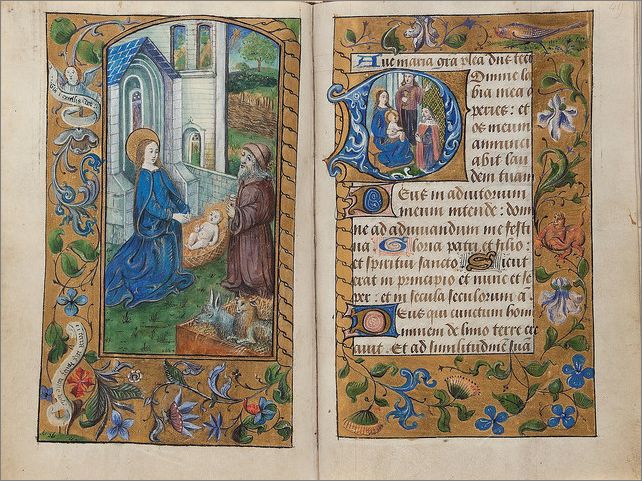 Aue maria gra plea dns tecu
Domine la
bia mea a
peries : et
os meum
annunci
abit lau
dem tuam
Deus in adiutorium
meum intende : dom
ne ad adiuuandum me festi
na Gloria patri et filio :
et spiritui sancto Sicut
erat in principio et nunc et se
per : et in secula seculorum a
Deus qui cunctum hom
innem de limo terre cre
auit. Et ad similitudinē sua